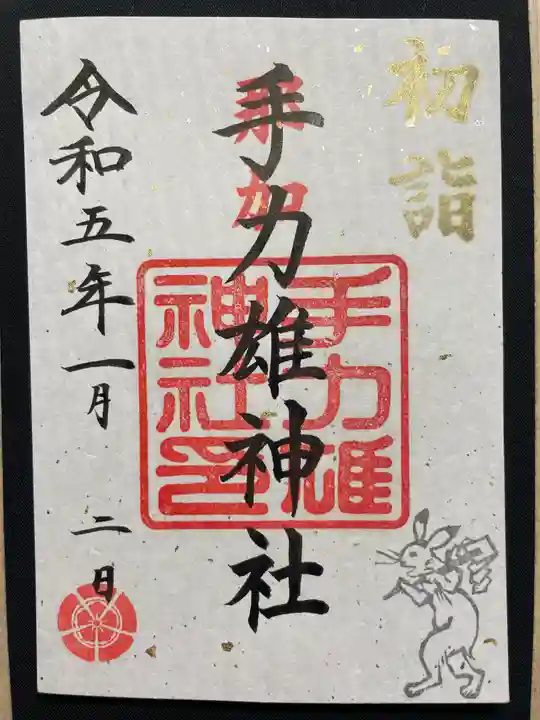 初詣
那加
手力雄神社
手力雄
神社印
令和五年一月二日